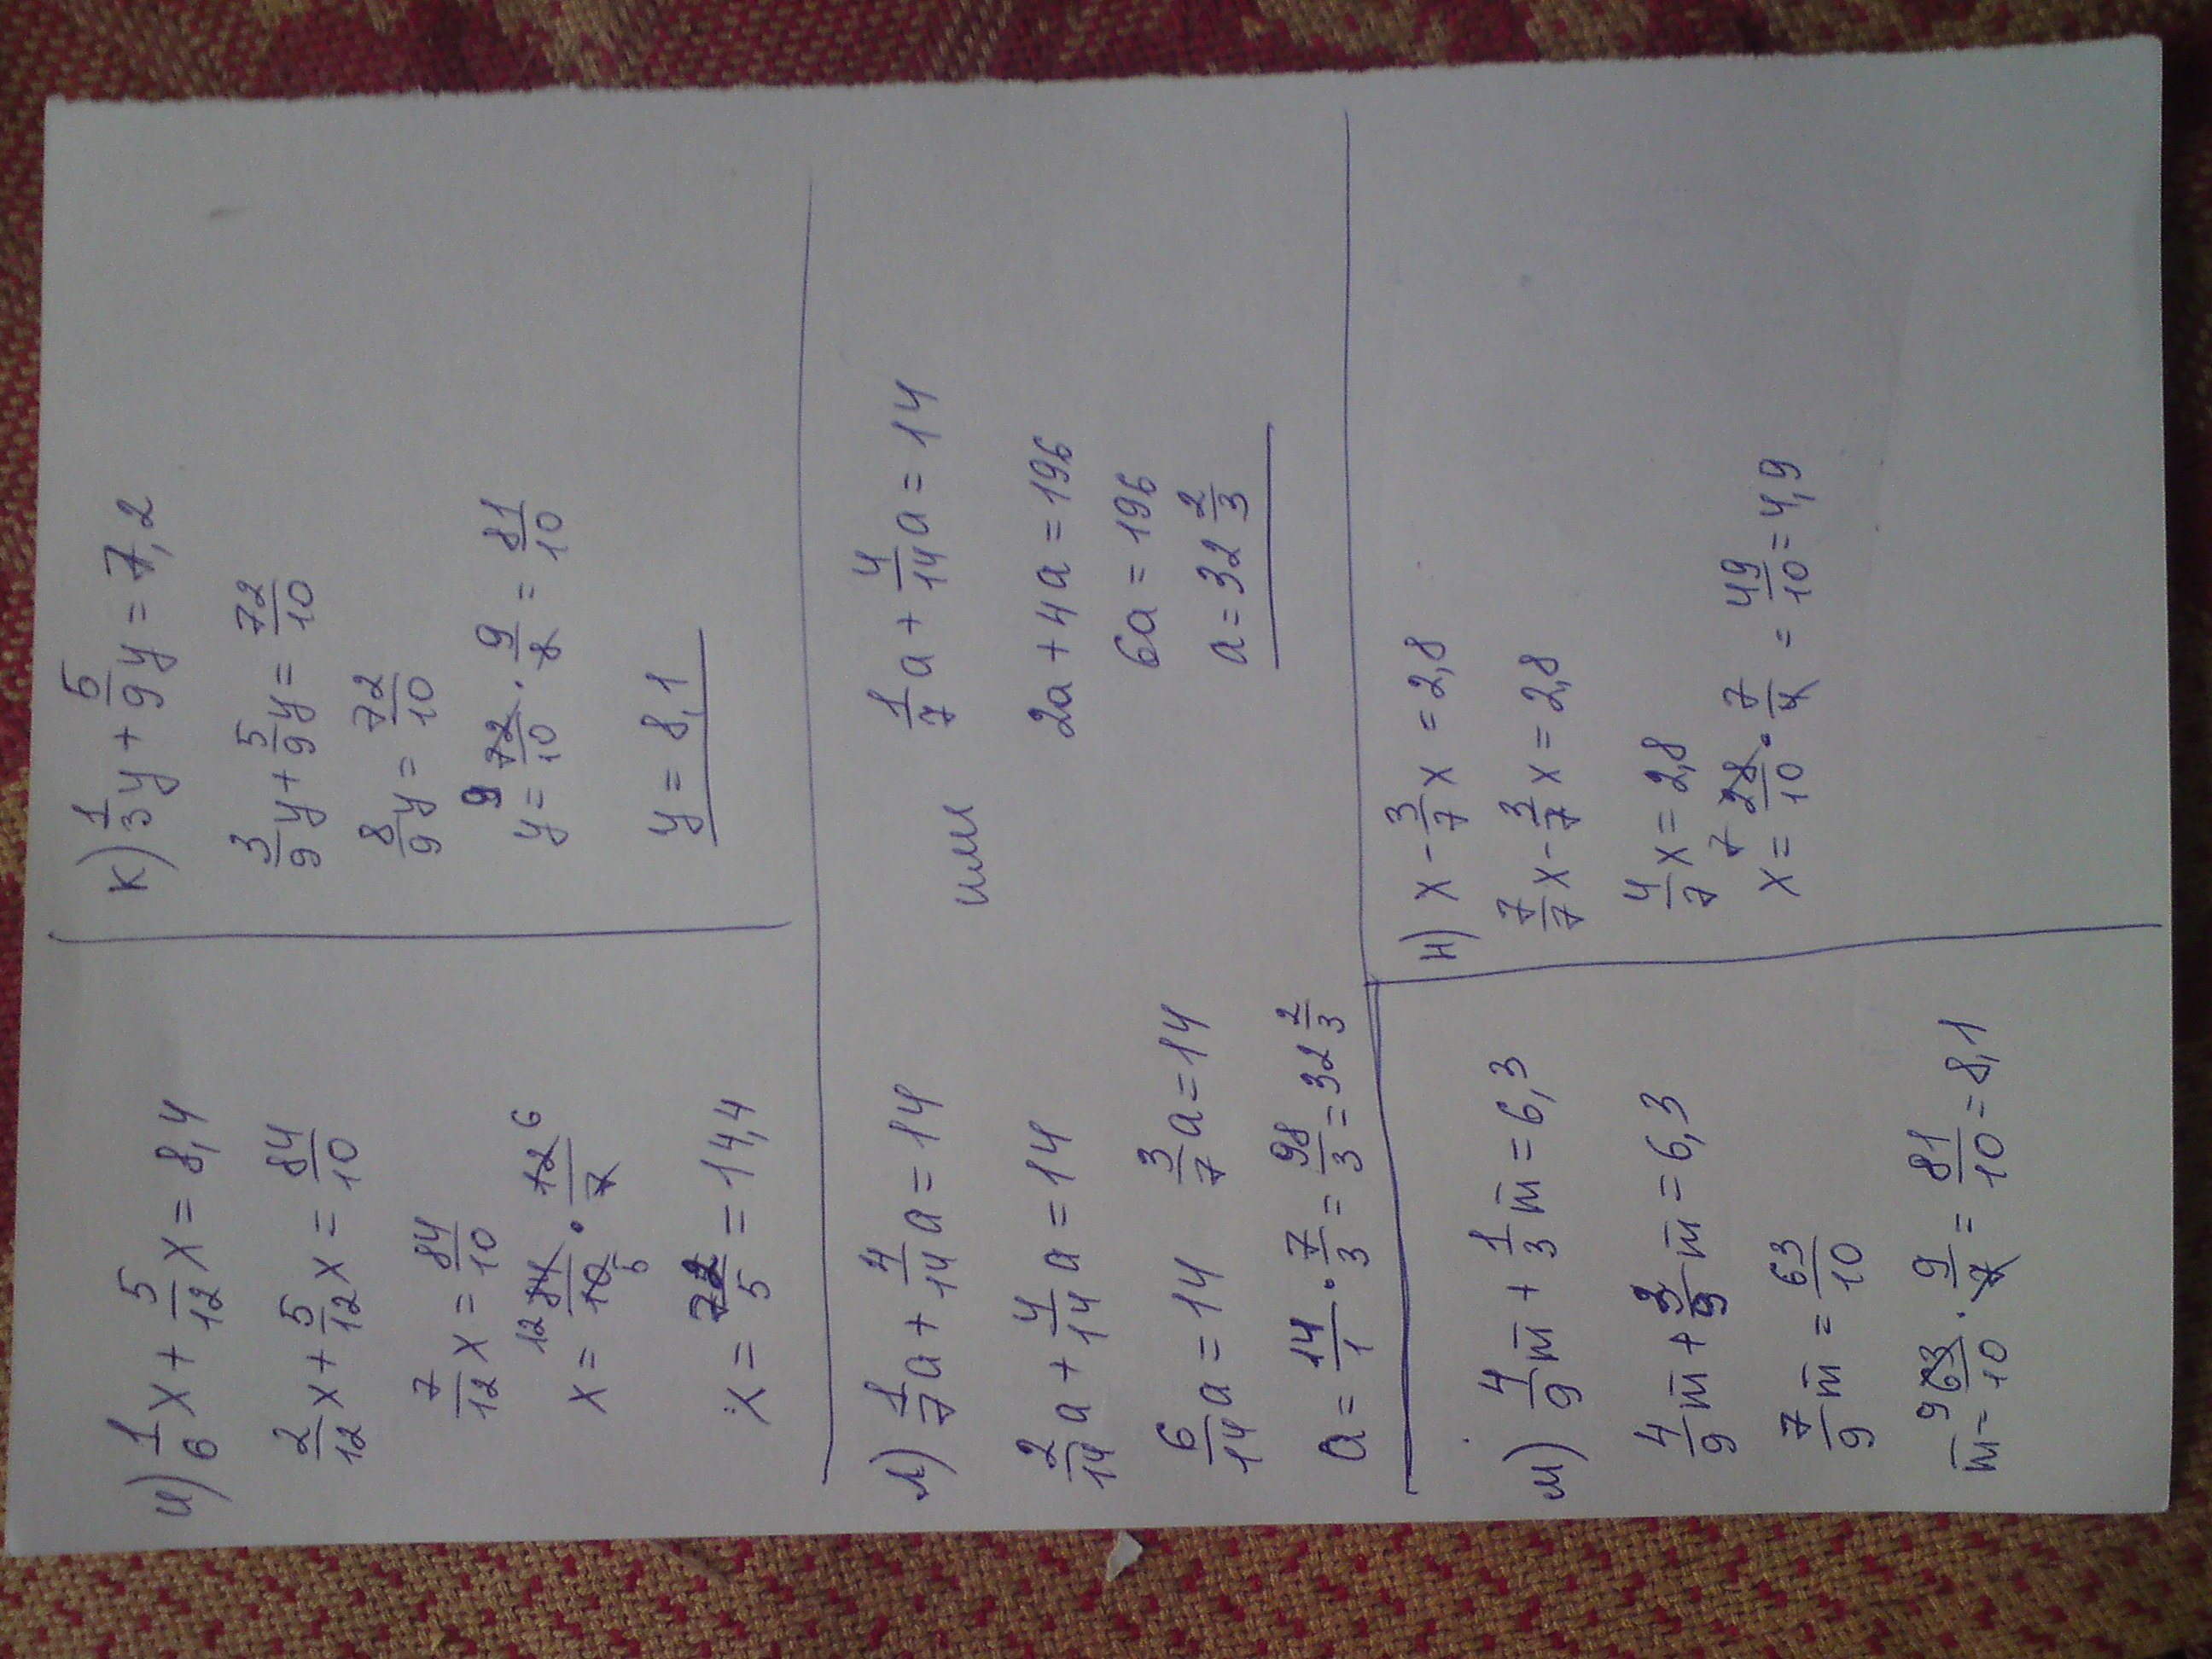 и) 1/6 x + 5/12 x = 8,4
2/12 x + 5/12 x = 84/10
7/12 x = 84/10
x = 12 84/10 5 · 12/7 6
x = 72/5 = 14,4
к) 1/3 y + 5/9 y = 7,2
3/9 y + 5/9 y = 72/10
8/9 y = 72/10
y = 9 72/10 · 9/8 = 81/10
y = 8,1
л) 1/7 a + 4/14 a = 14
2/14 a + 4/14 a = 14
6/14 a = 14 3/7 a = 14
a = 14/1 · 7/3 = 98/3 = 32 2/3
или
1/7 a + 4/14 a = 14
2a + 4a = 196
6a = 196
a = 32 2/3
м) 4/9 m + 1/3 m = 6,3
4/9 m + 3/9 m = 6,3
7/9 m = 63/10
m = 9 63/10 · 9/7 = 81/10 = 8,1
н) x - 3/7 x = 2,8
7/7 x - 3/7 x = 2,8
4/7 x = 2,8
x = 7 28/10 · 7/4 = 49/10 = 4,9